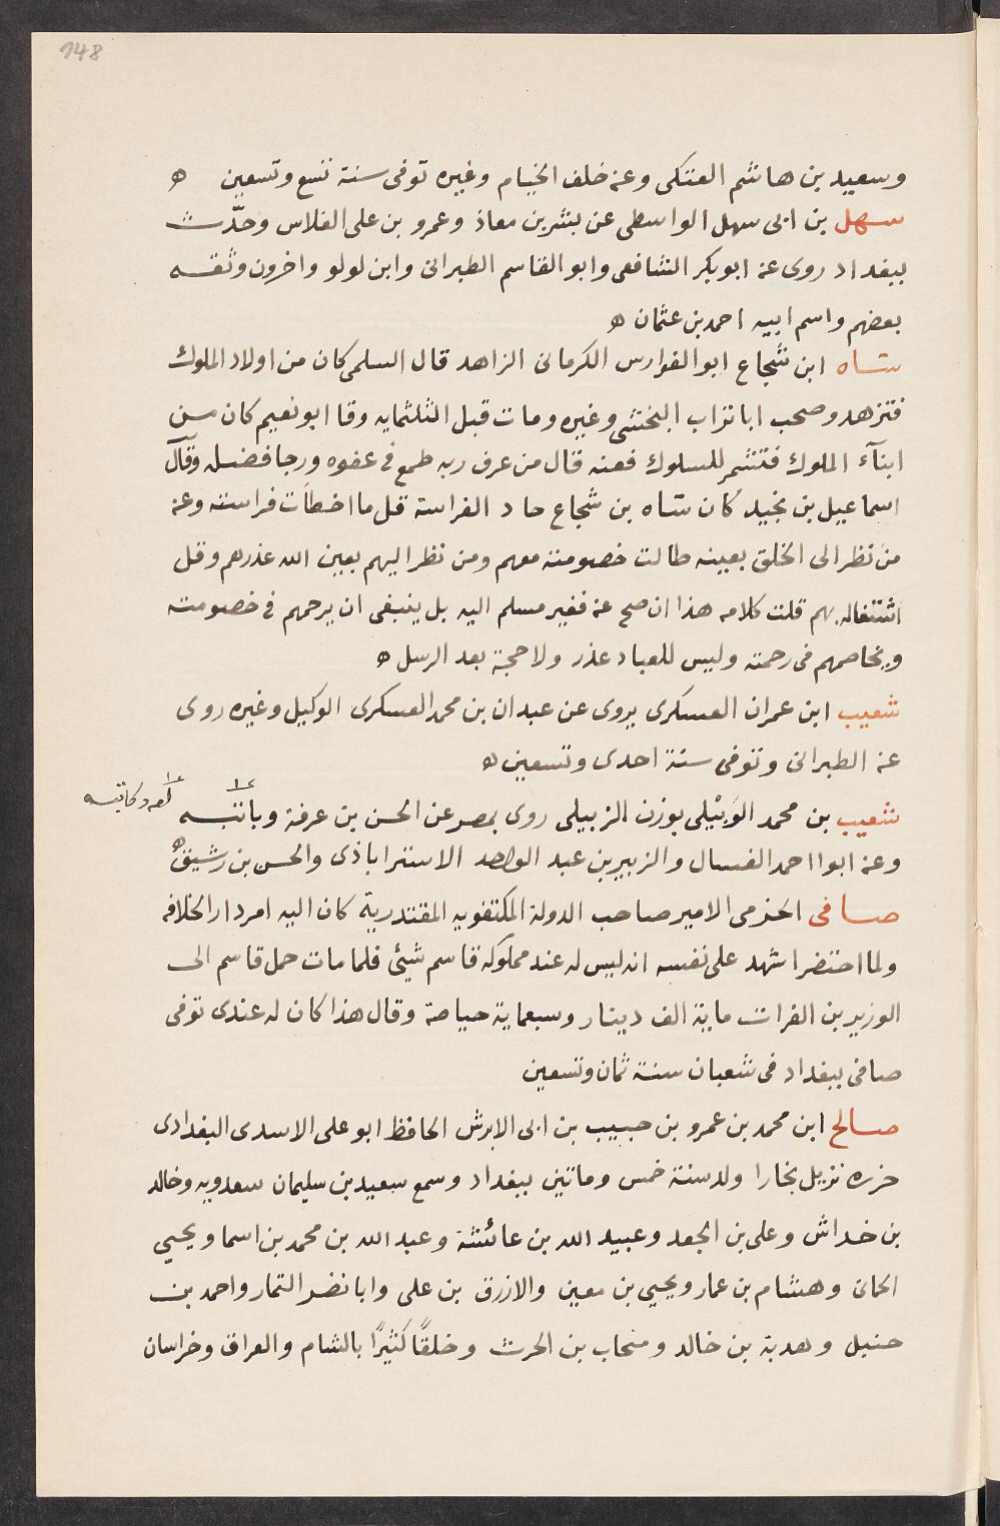 148
وسعيد بن هاشم العتكى وعنه خلف الخيام وغيره توفى سنة تسع وتسعين ۞
سهل بن ابى سهل الواسطى عن بشر بن معاذ وعمرو بن على الفلاس وحدّث
ببغداد روى عنه ابو بكر الشافعى وابو القاسم الطبرانى وابن لولو واخرون وثقه
بعضهم واسم ابيه احمد بن عثمان ۞
شاه ابن شجاع ابو الفوارس الكرمانى الزاهد قال السلمى كان من اولاد الملوك
فتزهد وصحب ابا تراب النخشى وغيره ومات قبل الثلثمايه وقا ابو نعيم كان من
ابنآء الملوك فتشمر للسلوك فعنه قال من عرف ربه طمع فى عفوه ورجا فضله وقال
اسماعيل بن نجيد كان شاه بن شجاع حاد الفراسة قل ما اخطأت فراسته وعنه
من نظر الى الخلق بعينه طالت خصومته معهم ومن نظر اليهم بعين الله عذرهم وقل
اشتغاله بهم قلت كلامه هذا ان صح عنه فغير مسلم اليه بل ينبغى ان يرحمهم فى خصومته
ويخاصمهم فى رحمته وليس للعباد عذر ولا حجة بعد الرسل ۞
شعيب ابن عمران العسكرى يروى عن عبدان بن محمد العسكرى الوكيل وغيره روى
عنه الطبرانى وتوفى سنة احدى وتسعين ۞
شعيب بن محمد الوَبئيلى بوزن الزبيلى روى بمصر عن الحسن بن عرفة وبابته
وعنه ابوا احمد الغسال والزبير بن عبد الواحد الاستراباذى والحسن بن رشيق ۞
صافى الحزمى الامير صاحب الدولة المكتفويه المقتدرية كان اليه امر دار الخلافه
ولما احتضر اشهد على نفسه انه ليس له عند مملوكه قاسم شيئ فلما مات حمل قاسم الى
الوزير بن الفرات ماية الف دينار وسبعماية حياصة وقال هذا كان له عندى توفى
صافى ببغداد فى شعبان سنة ثمان وتسعين
صالح ابن محمد بن عمرو بن حبيب بن ابى الابرش الحافظ ابو على الاسدى البغدادى
حزره نزيل بخارا ولد سنة خمس وماتين ببغداد وسمع سعيد بن سليمان سعدويه وخالد
بن خداش وعلى بن الجعد وعبيد الله بن عائشة وعبد الله بن محمد بن اسما ويحيى
الحمانى وهشام بن عمار ويحيى بن معين والازرق بن على وابا نضر التمار واحمد بن
حنبل وهدبة بن خالد ومنجاب بن الحرث وخلقًا كثيرًا بالشام والعراق وخراسان